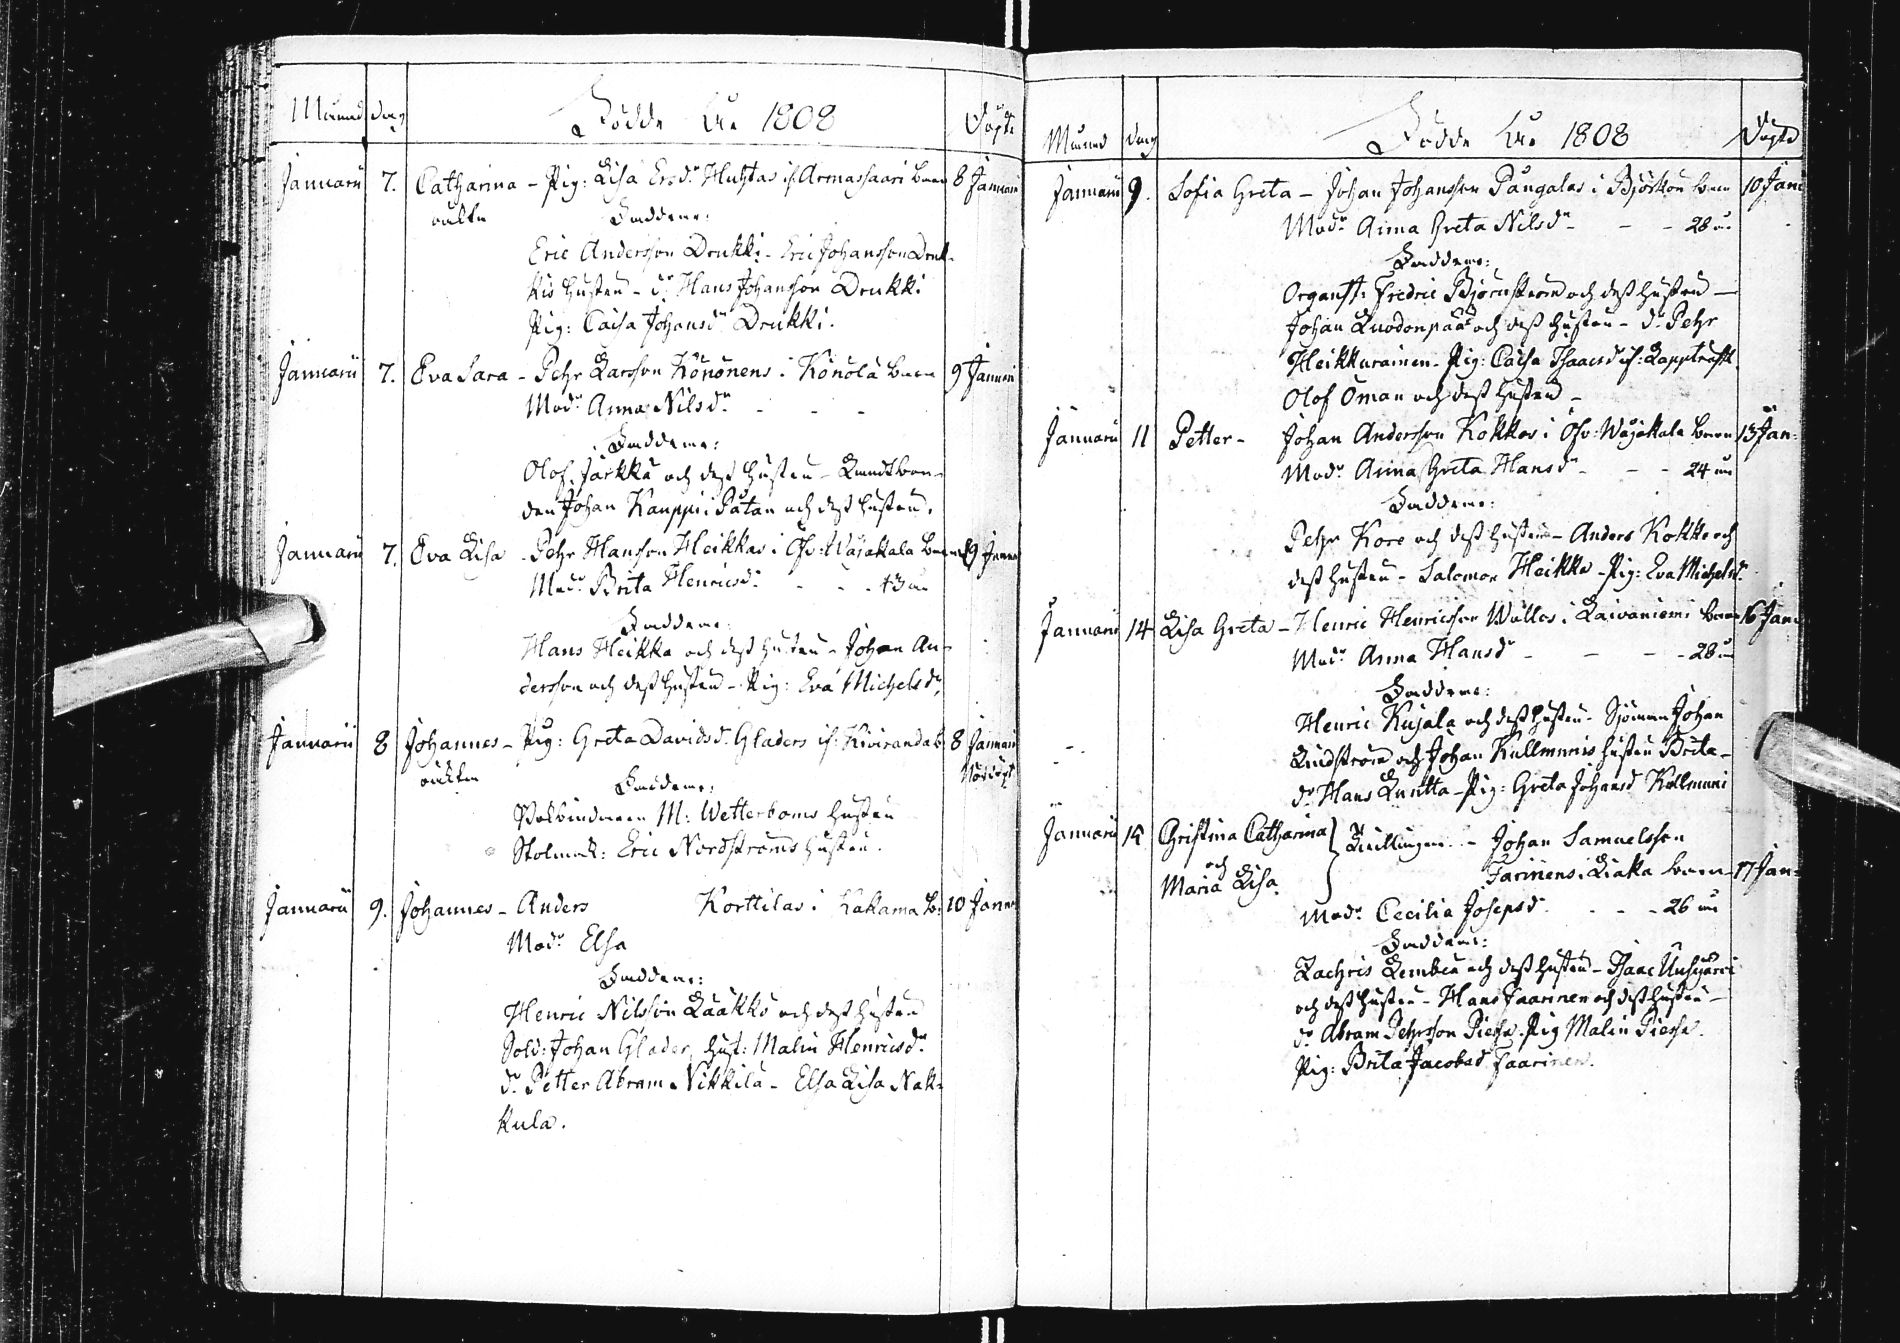 Månad dag Födde År 1808 Döpte
Januarii 7. Catharina - Pig: Lisa Ersdr Huhtas if. Armassaari barn 8 Januari
oäkta Faddrar:
Eric Andersson Drukki - Eric Johansson Druk-
kis hustru - dr Hans Johansson Drukki
Pig: Caisa Johansdr Drukki.
Januarii 7. Eva Sara - Pehr Larsson Könönens i Könölä barn 9 Januari
Modr Anna Nilsdr - - -
Faddrar:
Olof Jarkkä och dess hustru - Landtbon-
den Johan Kauppi i dess hustru.
Januarii 7. Eva Lisa - Pehr Hansson Heikkas i Öfv: Wojakkala barn 9 Janua
Modr Brita Henricsdr - - - 43 år
Faddrar:
Hans Heikka och dess hustru - Johan An-
dersson och dess hustru - Pig: Eva Michelsdr
Januarii 8 Johannes - Pig: Greta Davidsdr Gladers if: Kiviranda b. 8 Januari
oäkta Faddrar: Nöddöpt
M: Wetterboms hustru
Stolmak: Eric Nordströms hustru.
Januarii 9. Johannes - Anders Korttilas i Kakama b: 10 Janua
Modr Elsa
Faddrar:
Henric Nilsson Laakko och dess hustru
Sold: Johan Glader, hust: Malin Henricsdr
dr Petter Abram Nikkilä - Elsa Lisa Nak-
kula.
Månad dag Födde År 1808 Döpte
Januarii 9. Sofia Greta - Johan Johansson Pangalas i Björkön barn 10 Jan:
Modr Anna Greta Nilsdr - - - 28 år
Faddrar:
Organist: Fredric Björnström och dess hustru -
Johan Luodonpää och dess hustru - dr Pehr
Heikkurainen - Pig: Caisa Isaacsdr
Olof Öman och dess hustru -
Januarii 11 Petter - Johan Andersson Kokkos i Öfv: Wojakkala barn 13 Jan:
Modr Anna Greta Hansdr - - - 24 år
Faddrar:
Pehr Kore och dess hustru - Anders Kokko och
dess hustru - Salomon Heikka - Pig: Eva Michelsdr
Januarii 14 Lisa Greta - Henric Henricsson Wallos i Laivaniemi barn 16 Jan:
Modr Anna Hansdr - - - 28 år
Faddrar:
Henric Kujala och dess hustru - Sjöman Johan
Lindström och Johan Kullmunis hustru Brita -
dr Hans Luutta - Pig: Greta Johansdr Kullmuni
Januarii 15 Christina Catharina } Twillingar - Johan Samuelsson
och Maria Lisa Farinens i Liaka barn 17 Jan:
Modr Cecilia Josepsdr - - - 26 år
Faddrar:
Zachris Lembea och dess hustru - Isaac
och dess hustru - Hans Faarinen och dess hustru -
dr Abram Pehrsson Pieska - Pig Malin Pieska.
Pig: Brita Jacobsd Faarinen.